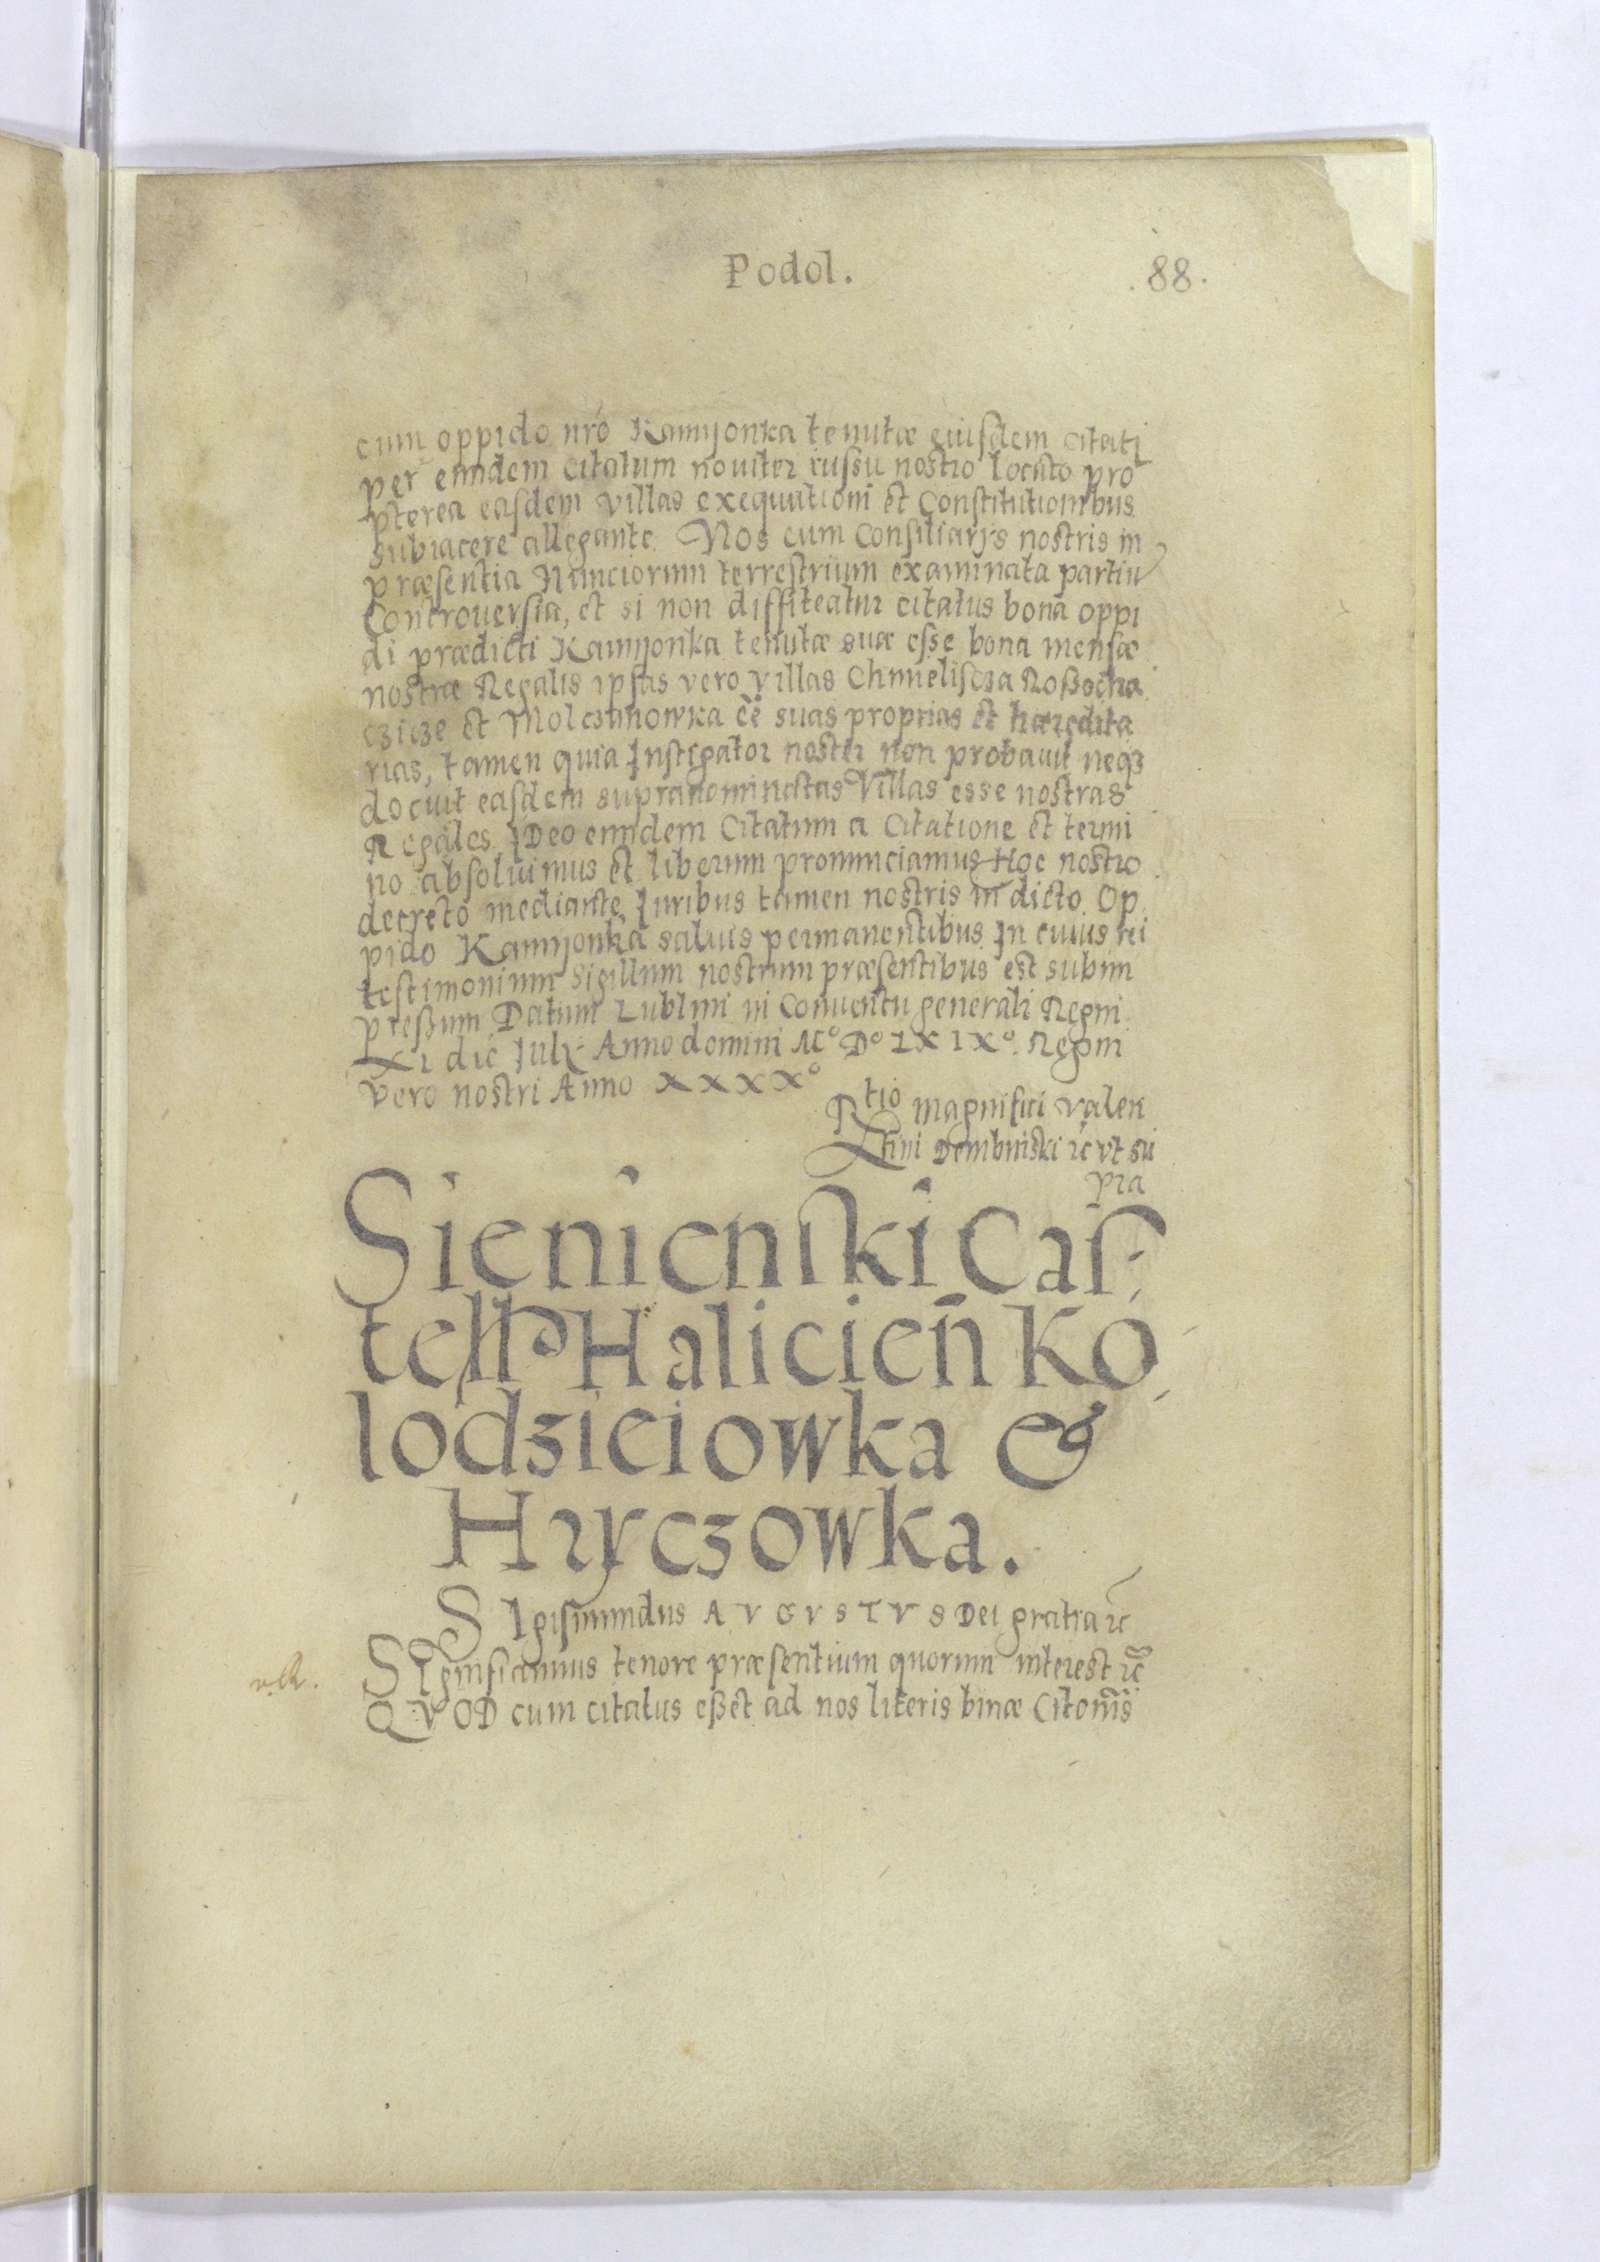 Podol. 88.
cum oppido nr̃o Kamyonka tenutæ eiusdem citati
per eundem citatum nouiter iussu nostro locato pro
pterea easdem villas exequutioni et Constitutionibus
subiacere allegante. Nos cum Consiliarijs nostris in
præsentia Nunciorum terrestrium examinata partiu
Controuersia, et si non diffiteatur citatus bona oppi
di prædicti Kamyonka tenutæ suæ esse bona mensæ
nostræ Regalis ipsas vero villas Chmieliscza Roßocha
czicze et Molczanowka eẽ suas proprias et hæredita
rias, tamen quia Instigator noster non probauit neqȝ
docuit easdem supranominatas Villas esse nostras
Regales IDeo eundem Citatum a Citatione et termi
no absoluimus et liberum pronunciamus Hoc nostro
decreto mediante Iuribus tamen nostris in dicto Op
pido Kamyonka saluis permanentibus In cuius rei
testimonium Sigillum nostrum præsentibus est subim
preßum Datum Lublini in Conuentu generali Regni
XI die Iulij Anno domini Mº Dº LXIXº. Regni
vero nostri Anno XXXXº
Rtio magnifici Valen
tini Dembinski ic̃ vt su
pra
Sienienſki Caſ
tell Halicien̄ Ko
lodzieiowka &
Hryczowka.
SIgismundus AVGVSTVS Dei gratia ic̃
SIgnificamus tenore præsentium quorum interest ic̃
QVOD cum citatus eßet ad nos literis binæ Citom̃s